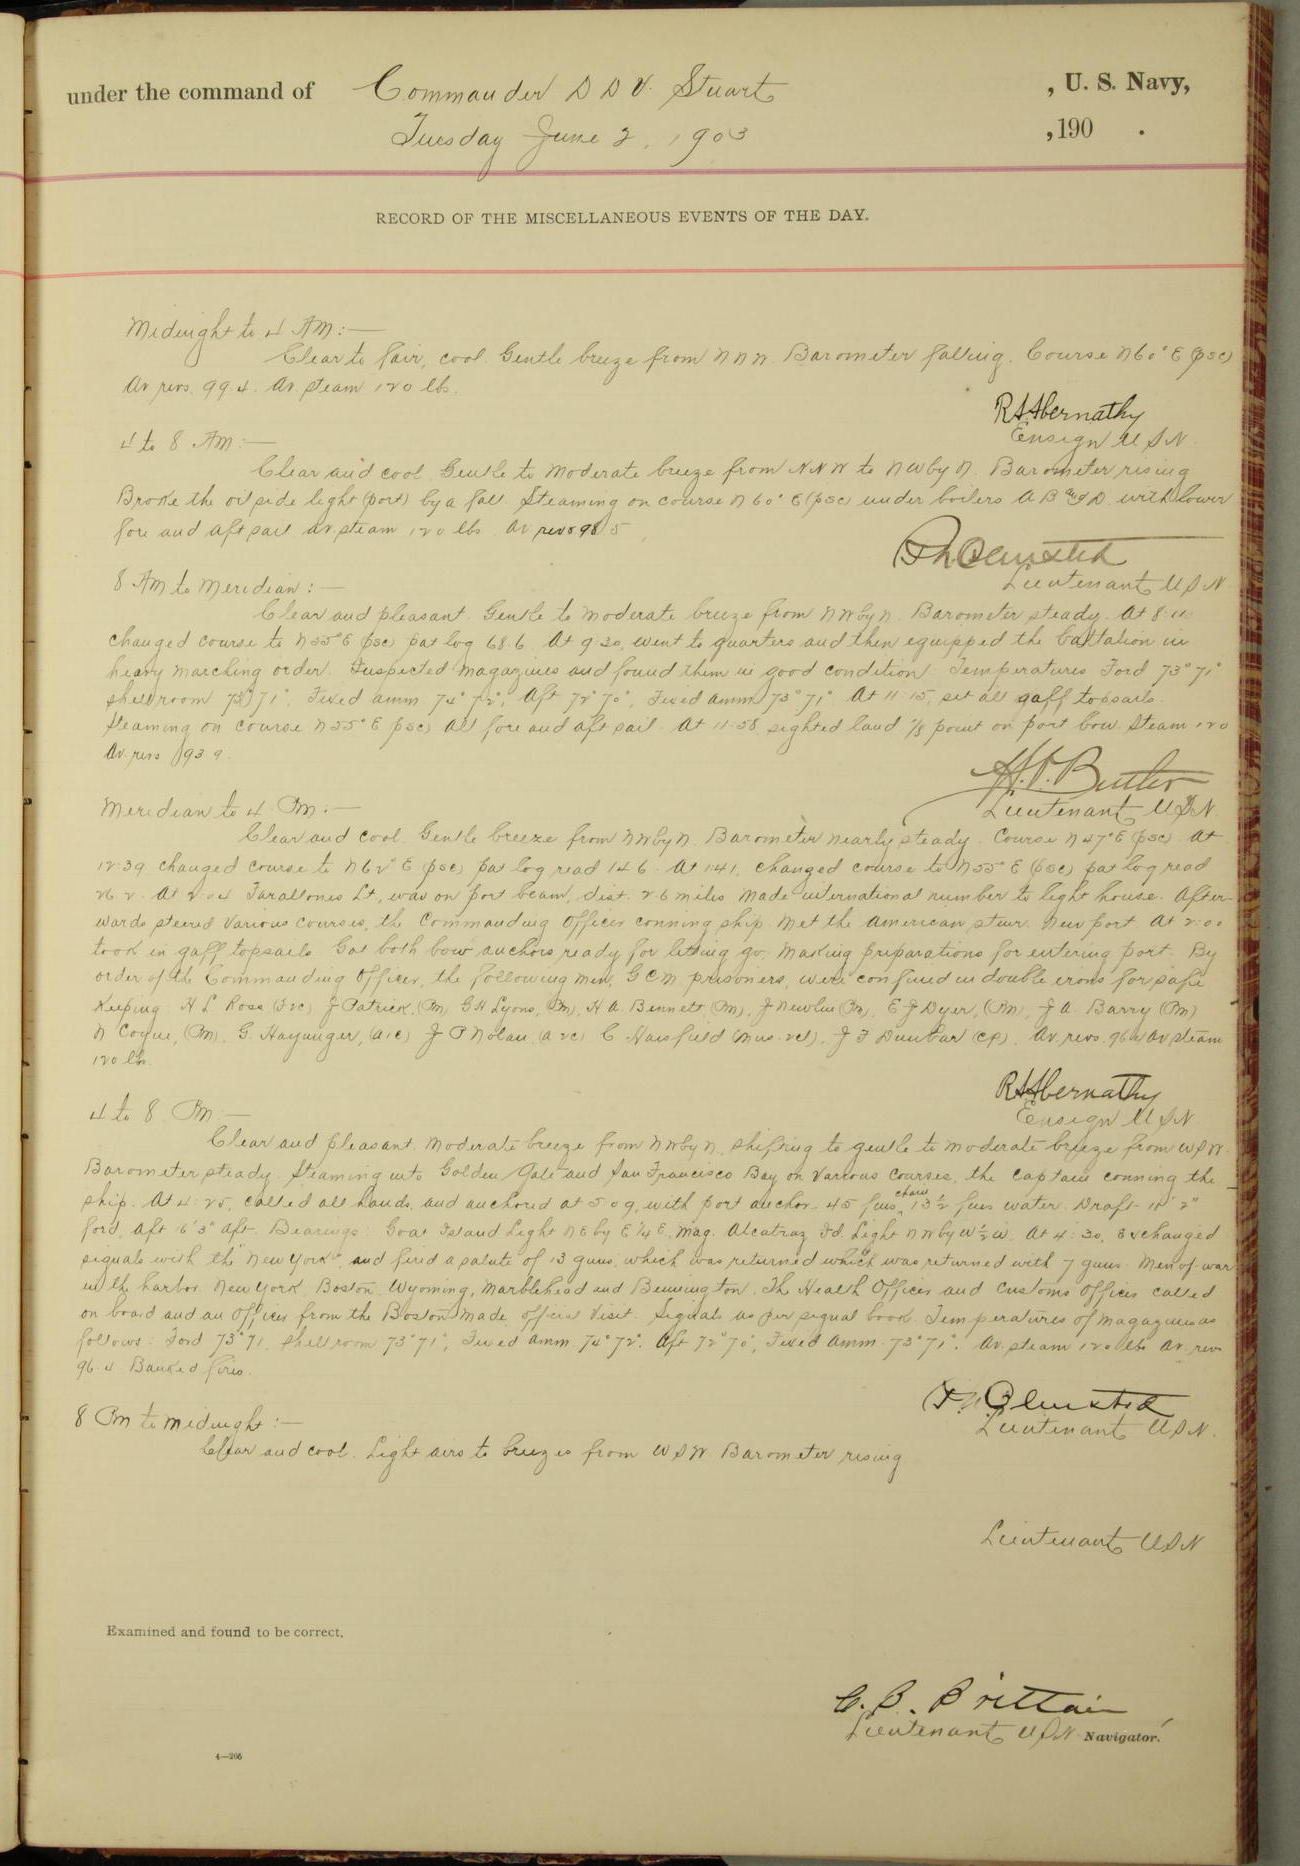 under the command of Commander D D V. Stuart , U. S. Navy,
Tuesday June 2, 1903 , 190 .
RECORD OF THE MISCELLANEOUS EVENTS OF THE DAY.
Midnight to 4 AM:—
Clear to fair, cool. Gentle breeze from NNW. Barometer falling. Course N60°E (psc)
Av revs. 99.4. Av. steam 120 lbs.
R A Abernathy
Ensign U S N.
4 to 8 AM:—
Clear and cool. Gentle to moderate breeze from NNW to NW by N. Barometer rising
Broke the oil side light (port) by a fall. Steaming on course N60°E (psc) under boilers A B and D. with lower
fore and aft sail av. steam 120 lbs. Av revs 98.5.
F N Olmsted
Lieutenant U S N
8 AM to Meridian:—
Clear and pleasant. Gentle to moderate breeze from NW by N. Barometer steady. At 8.11
changed course to N55°E (psc) pat log 68.6. At 9.30, went to quarters and then equipped the battalion in
heavy marching order. Inspected magazines and found them in good condition. Temperatures Ford 73° 71°
shellroom 73° 71° Fixed amm 74° 72°, Aft 72° 70°, Fixed amm 73° 71°. At 11.15, set all gaff topsails.
Steaming on course N55°E (psc) All fore and aft sail. At 11.58, sighted land ⅛ point on port bow. Steam 120
Av. revs 93.9.
Lieutenant U S N.
Meridian to 4 PM:—
Clear and cool. Gentle breeze from NW by N. Barometer nearly steady. Course N47°E (psc). At
12.39 changed course to N62°E (psc) pat log read 14.6. At 1.41, changed course to N55°E (psc) pat log read
26.2. At 2.04 Farallones Lt, was on port beam, dist. 2.6 miles Made international number to light house. After-
wards steered various courses, the Commanding Officer conning ship. Met the American stmr. Newport. At 2:00
took in gaff topsails. Got both bow anchors ready for letting go. Making preparations for entering port. By
order of the Commanding Officer, the following men, G C M prisoners, were confined in double irons for safe
keeping: H L Ross J Patrick, (Pm) G H Lyons, (Pm), H A. Bennett (Pm), J (Pm), E J Dyer, (Pm), J A. Barry (Pm)
N (Pm), G. (a1c) J P Nolan, (a2c) C (Mus. 2cl), J F Dunbar (cp). Av. revs. 96. Av steam
120 lbs.
R A Abernathy
Ensign U S N.
4 to 8 PM:—
Clear and pleasant. Moderate breeze from NW by N, shifting to gentle to moderate breeze from WSW.
Barometer steady. Steaming into Golden Gate and San Francisco Bay on various courses, the Captain conning the
ship. At 4:25, called all hands, and anchored at 5.09, with port anchor 45 fms chain, 13½ fms water. Draft 2"
ford, aft 16' 3" aft. Bearings: Goat Island Light NE by E¼E, mag. Alcatraz Id. Light NW by W½W. At 4:30, exchanged
signals with the "New York", and fired a salute of 13 guns, which was returned which was returned with 7 guns. Men of war
in the harbor New York, Boston, Wyoming, Marblehead and Bennington. The Health Officer and Customs Officer called
on board and an officer from the Boston made official visit. Signals as per signal book. Temperatures of magazines as
follows: Ford 73° 71, shellroom 73° 71°, Fixed amm. 74° 72°. Aft 72° 70°, Fixed amm. 73° 71°. Av. steam 120 lbs Av. revs
96.4 Banked fires.
F N Olmsted
Lieutenant U S N.
8 PM to midnight:—
Clear and cool. Light airs to breezes from WSW. Barometer rising
Lieutenant U S N
Examined and found to be correct.
C. B. Brittain
Lieutenant U S N. Navigator.
4—205